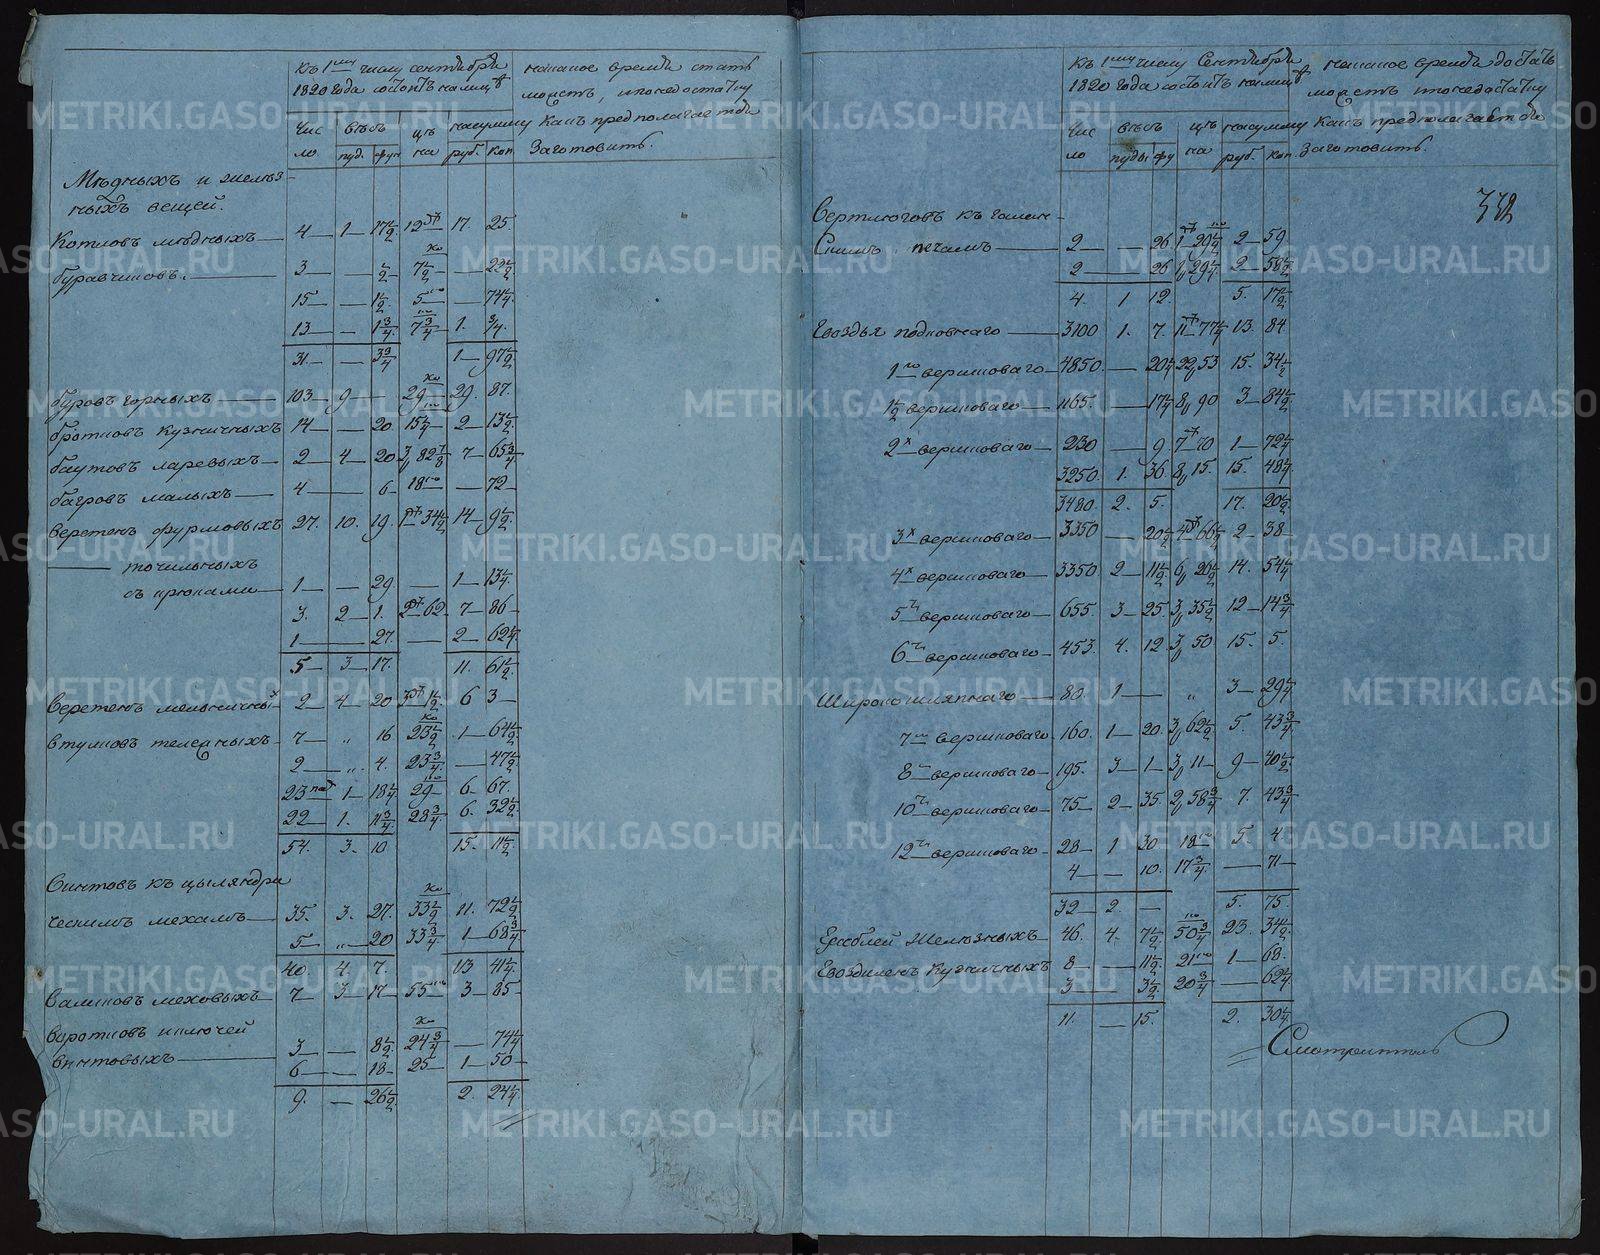 Къ 1му числу сентября
1820 года состоитъ налицо
на какое время стать
можетъ, и по недостатку
Чис
ло
вѣсъ
цѣ
на
на сумму
какъ предполагается
пуд.
фун
руб.
коп
Заготовить.
Мѣдныхъ и желѣз-
ныхъ вещей.
Котловъ мѣдныхъ 4 1 17½ 12 17. 25.
буравчиковъ. 3 ½ 7½ 22½
15 1½. 5 74¼
13 1¾. 7¾ 1. ¾.
31. 3¾ 1 97½
буровъ горныхъ 103 9 29 29. 87.
14 20 15¼ 2 13½.
баутовъ ларевыхъ 2 4 20 3,, 82⅞ 7 65¾
багровъ малыхъ 4 6 18 72
веретенъ фурмовыхъ 27. 10. 19. 1 34½ 14 9½.
точильныхъ
съ крюками 1 29. 1 13¼.
3. 2 1. 2 62 7 86
1 27. 2 62¼
5 3 17. 11. 61½
Веретенъ мельничны 2 4 20 6 3
7 „ 16 23½ 1 64½
2 „ 4. 23¾. 47½
23 1 18¼ 29 6 67.
22 1. 11¾. 28¾. 6. 32½
54. 3. 10 15. 11½
Винтовъ къ цыляндри
ческимъ мехамъ 35. 3. 27. 33½ 11. 72½
5 „ 20 33¾ 1 68¾
40. 4. 7. 13 41¼.
Валиковъ меховыхъ 7 3 17 55 3 85
ключей
винтовыхъ 3 8½ 24¾ 74¼
6 18 25 1 50
9. 26½. 2. 24¼
Къ 1му числу Сентября
1820 года состоитъ налицо
на какое время достать
можетъ и по недостатку
Чис
ло
вѣсъ
цѣ
на
на сумму
какъ предполагается
пуды
фу
руб.
коп.
Заготовить.
332
Вертлюговъ къ
печамъ 2 26. 1 29½ 2 59
2 26 1,, 29¼ 2 58½
4. 1 12. 5. 17½
Гвоздья подковнаго 3100 1. 7. 11 77¼ 13. 84
1го вершковаго 4850. 20¼ 22,, 53 15. 34½
1½ вершковаго 1165. 17¼ 8,, 90 3 84½
2х вершковаго 230 9 7 70 1 72¼
3250. 1. 36. 8,, 15. 15. 48¼.
3480. 2. 5. 17. 20½
3х вершковаго 3350 20¼ 4 66¼ 2 38
4х вершковаго 3350 2 11½ 6,, 20½ 14. 54¼
5ти вершковаго 655. 3 25. 3,, 35½ 12 14¾
6ти вершковаго 453. 4. 12. 3,, 50 15. 5.
Широкошляпнаго 80. 1 „ 3 29¼
7ми вершковаго 160. 1 20. 3,, 62½ 5. 43¾
8ми вершковаго 195. 3 1 3,, 11 9 40½
10ти вершковаго 75 2 35. 2,, 58¾ 7. 43¾
12ти вершковаго 28 1 30 18 5. 4
4 10. 17¾. 71
32 2. 5. 75.
Граблей Желѣзныхъ 46. 4. 7½ 50¾ 23. 34½
Гвоздиленъ Кузничныхъ 8 11½ 21 1 68.
3 3½ 20¾ 62¼
11. 15. 2. 30¼
Смотритель
METRIKI.GASO-URAL.RU